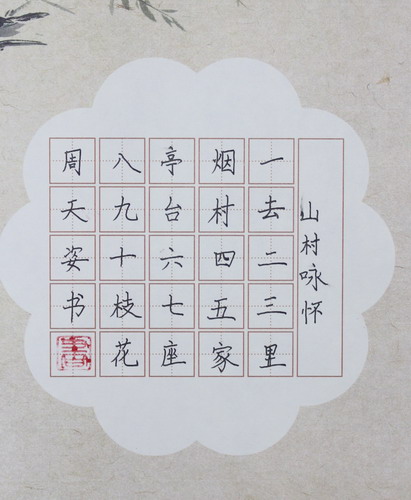 山村咏怀
一去二三里
烟村四五家
亭台六七座
八九十枝花
周天姿书